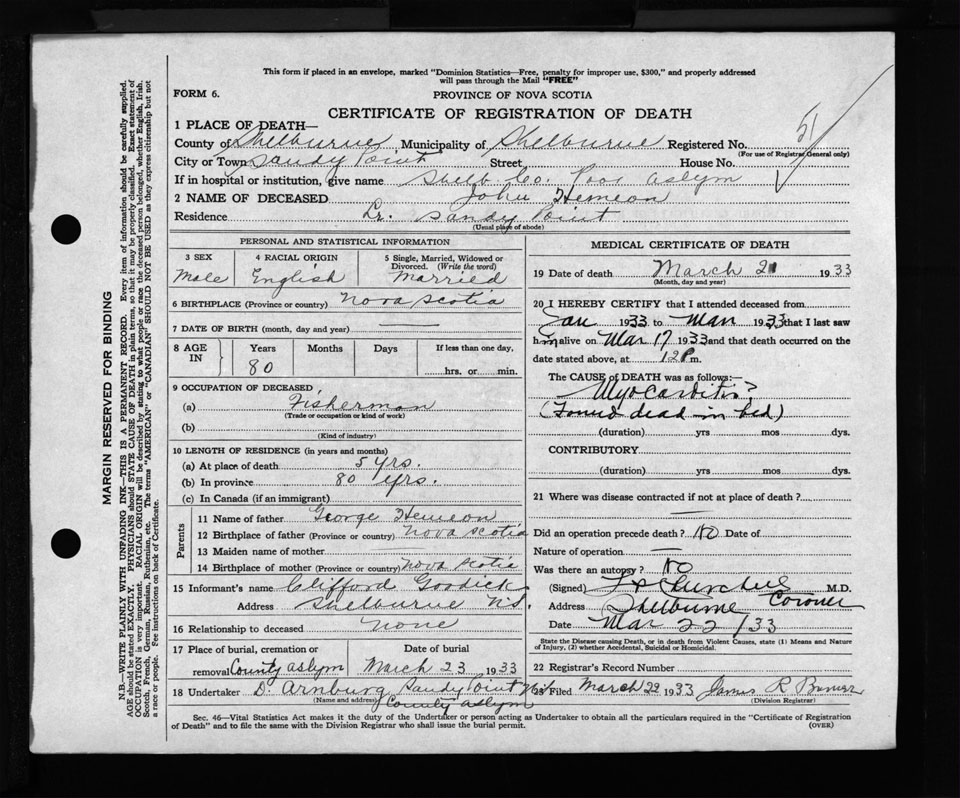 This form if placed in an envelope, marked "Dominion Statistics—Free, penalty for improper use, $300," and properly addressed
will pass through the Mail "FREE"
FORM 6.
PROVINCE OF NOVA SCOTIA
CERTIFICATE OF REGISTRATION OF DEATH
51
1 PLACE OF DEATH—
County of Shelburne Municipality of Shelburne Registered No.
(For use of Registrar General only)
City or Town Sandy Point Street House No.
If in hospital or institution, give name Shelb. Co. Poor Aslym
2 NAME OF DECEASED John Hemeon
Residence Lr. Sandy Point
(Usual place of abode)
PERSONAL AND STATISTICAL INFORMATION
3 SEX Male
4 RACIAL ORIGIN English
5 Single, Married, Widowed or
Divorced. (Write the word)
Married
6 BIRTHPLACE (Province or country) Nova Scotia
7 DATE OF BIRTH (month, day and year) —
8 AGE IN
Years Months Days If less than one day,
80 hrs. or min.
9 OCCUPATION OF DECEASED
(a) Fisherman
(Trade or occupation or kind of work)
(b)
(Kind of industry)
10 LENGTH OF RESIDENCE (in years and months)
(a) At place of death 5 yrs.
(b) In province 80 yrs.
(c) In Canada (if an immigrant)
Parents
11 Name of father George Hemeon
12 Birthplace of father (Province or country) Nova Scotia
13 Maiden name of mother —
14 Birthplace of mother (Province or country) Nova Scotia
15 Informant's name Clifford Goodick
Address Shelburne N.S.
16 Relationship to deceased None
17 Place of burial, cremation or Date of burial
removal County aslym March 23 1933
18 Undertaker D. Arnburg Sandy Point N.S.
(Name and address) County aslym
MEDICAL CERTIFICATE OF DEATH
19 Date of death March 21 1933
(Month, day and year)
20 I HEREBY CERTIFY that I attended deceased from
Jan 1933 to Mar 1933 that I last saw
him alive on Mar 17 1933 and that death occurred on the
date stated above, at 12 P m.
The CAUSE OF DEATH was as follows:—
Myocarditis?
(Found dead in bed)
(duration) yrs mos dys.
CONTRIBUTORY
(duration) yrs mos dys.
21 Where was disease contracted if not at place of death?
—
Did an operation precede death? No Date of
Nature of operation —
Was there an autopsy? No
(Signed) Churchill M.D.
Coroner
Address Shelburne
Date Mar 22 /33
State the Disease causing Death, or in death from Violent Causes, state (1) Means and Nature
of Injury, (2) whether Accidental, Suicidal or Homicidal.
22 Registrar's Record Number
23 Filed March 22 1933 James R
(Division Registrar)
Sec. 46—Vital Statistics Act makes it the duty of the Undertaker or person acting as Undertaker to obtain all the particulars required in the "Certificate of Registration
of Death" and to file the same with the Division Registrar who shall issue the burial permit. (OVER)
MARGIN RESERVED FOR BINDING
N.B.—WRITE PLAINLY WITH UNFADING INK—THIS IS A PERMANENT RECORD. Every item of information should be carefully supplied.
AGE should be stated EXACTLY. PHYSICIANS should STATE CAUSE OF DEATH in plain terms, so that it may be properly classified. Exact statement of
OCCUPATION is very important. RACIAL ORIGIN will be described by stating to what people or race the deceased person belonged, whether English, Irish,
Scotch, French, German, Russian, Ruthenian, etc. The terms "AMERICAN" or "CANADIAN" SHOULD NOT BE USED as they express citizenship but not
a race or people. Fee instructions on back of Certificate.